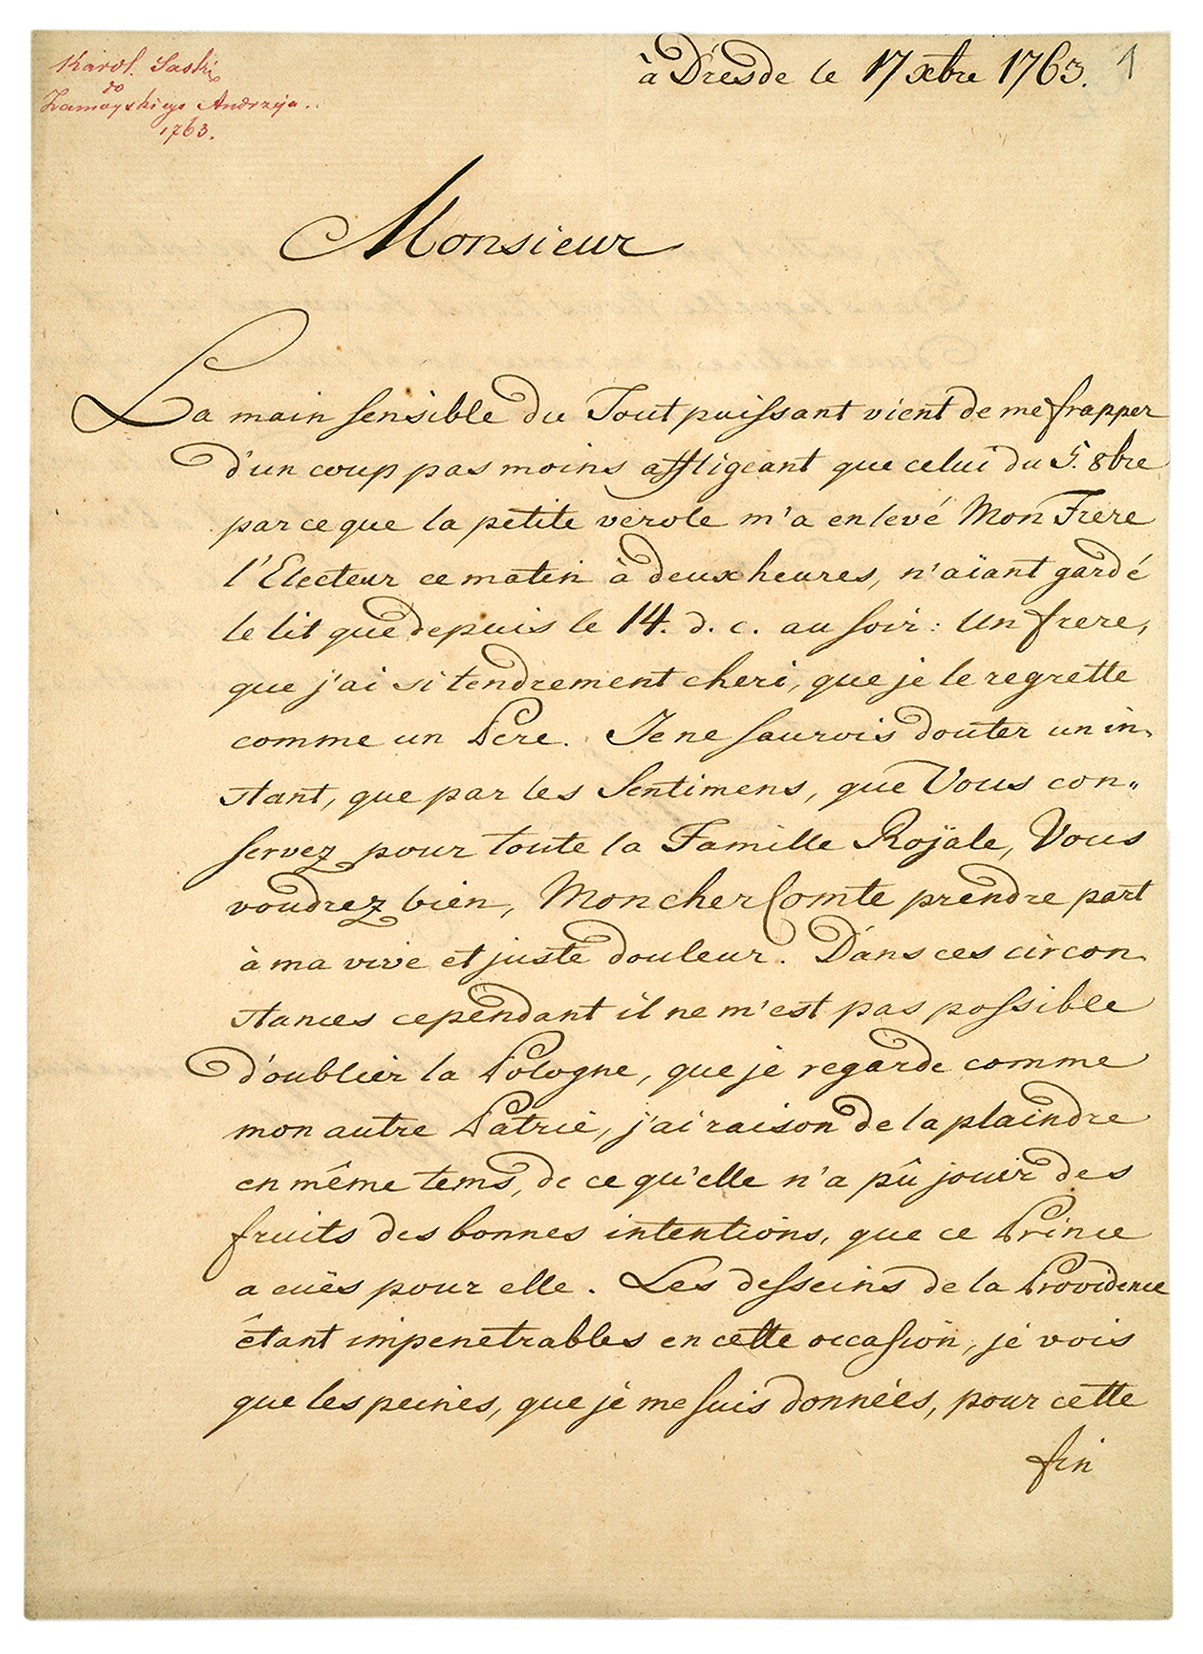 Karol. Saski
do
Zamoyskiego Andrzeja..
1763.
à Dresde le 17 xbre 1763. 1
Monsieur
La main sensible du Tout puissant vient de me frapper
d'un coup pas moins affligeant que celui du 5. 8bre
parceque la petite verole m'a enlevé Mon Frere
l'Electeur ce matin à deux heures, n'aïant gardé
le lit que depuis le 14. d. c. au soir: Un frere,
que j'ai si tendrement cheri, que je le regrette
comme un Pere. Je ne saurois douter un in-
stant, que par les Sentimens, que Vous con„
servez pour toute la Famille Roÿale, Vous
voudrez bien, Mon cher Comte prendre part
à ma vive et juste douleur. Dans ces circon-
stances cependant il ne m'est pas possible
d'oublier la Pologne, que je regarde comme
mon autre Patrie, j'ai raison de la plaindre
en même tems, de ce qu'elle n'a pû jouir des
fruits des bonnes intentions, que ce Prince
a euës pour elle. Les desseins de la Providence
êtant impenetrables en cette occasion, je vois
que les peines, que je me suis données, pour cette
fin